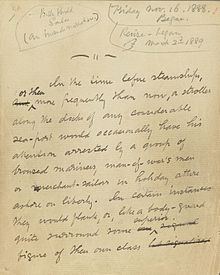 Billy Budd
Sailor
(An inside narrative)
Friday Nov. 16. 1888.
Began.
Revise - began
March 2nd 1889
In the time before steamships,
or then more frequently than now, a stroller
along the docks of any considerable
sea-port would occasionally have his
attention arrested by a group of
bronzed mariners, man-of-war's men
or merchant-sailors in holiday attire
ashore on liberty. In certain instances
they would flank, or, like a body-guard
quite surround some superior
figure of their own class